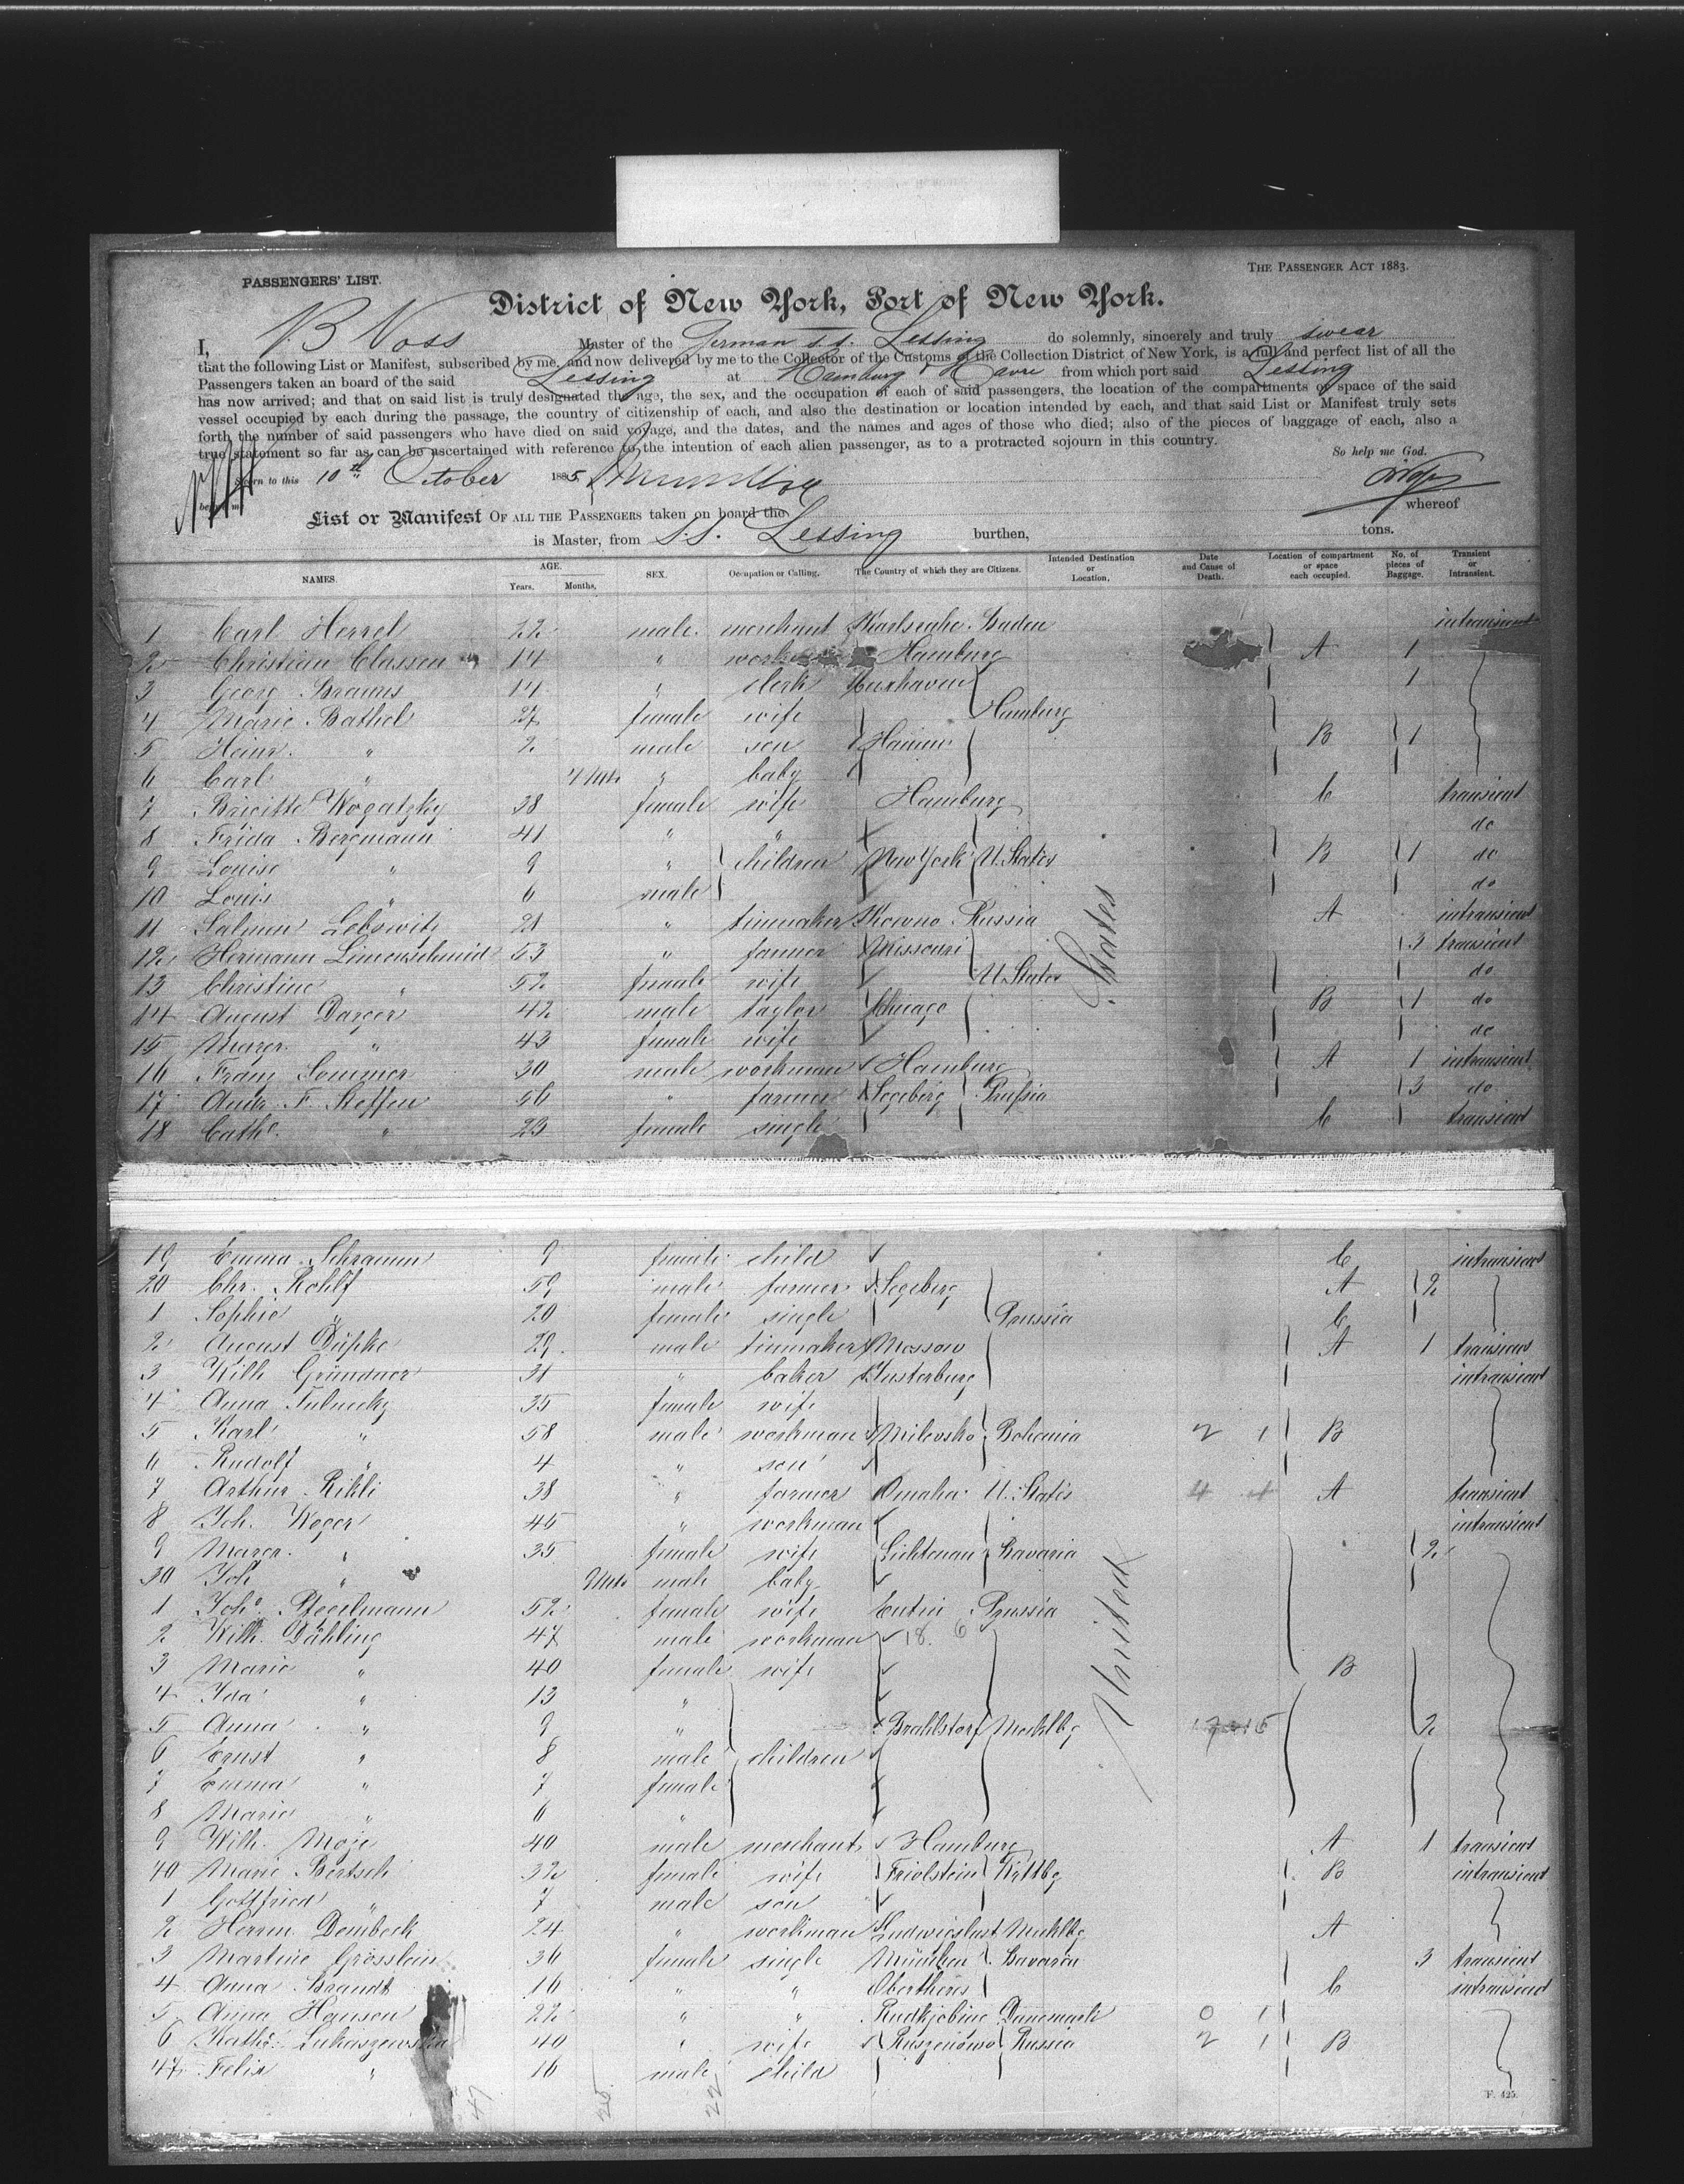 PASSENGERS' LIST.
THE PASSENGER ACT 1883.
District of New York, Port of New York.
I, B Voss Master of the German s.s. Lessing do solemnly, sincerely and truly swear
that the following List or Manifest, subscribed by me, and now delivered by me to the Collector of the Customs of the Collection District of New York, is a full and perfect list of all the
Passengers taken an board of the said Lessing at Hamburg & Havre from which port said Lessing
has now arrived; and that on said list is truly designated the age, the sex, and the occupation of each of said passengers, the location of the compartments or space of the said
vessel occupied by each during the passage, the country of citizenship of each, and also the destination or location intended by each, and that said List or Manifest truly sets
forth the number of said passengers who have died on said voyage, and the dates, and the names and ages of those who died; also of the pieces of baggage of each, also a
true statement so far as can be ascertained with reference to the intention of each alien passenger, as to a protracted sojourn in this country.
So help me God.
Sworn to this 10th October 1885
before me
List or Manifest OF ALL THE PASSENGERS taken on board the whereof
is Master, from S.S. Lessing burthen, tons.
NAMES. AGE. Years. Months. SEX. Occupation or Calling. The Country of which they are Citizens. Intended Destination or Location. Date and Cause of Death. Location of compartment or space each occupied. No. of pieces of Baggage. Transient or Intransient.
1 Carl Herrel 22 male merchant Karlsruhe Baden intransient
2 Christian Classen 14 " Hamburg A 1
3 Georg Brauns 14 " clerk Cuxhaven 1
4 Marie Bathel 27 female wife Hamburg
5 Heinr. " 2 male son B 1
6 Carl " 4 Mts " baby
7 Brigitte Wogatzky 38 female wife Hamburg C transient
8 Frida Bergmann 41 " " do
9 Louise " 9 " children New York U. States B 1 do
10 Louis " 6 male do
11 Salmen Lebowitz 21 " tinmaker Kowno Russia A intransient
12 Hermann Limenschmid 53 " farmer Missouri 3 transient
13 Christine " 52 female wife U. States do
14 August Darger 42 male taylor Chicago B 1 do
15 Margr. " 43 female wife do
16 Franz Sommer 30 male workman Hamburg A 1 intransient
17 Andr. F. Steffen 56 " farmer Segeberg Prussia 3 do
18 Cathe. " 23 female single C transient
19 Emma Schramm 9 female child C intransient
20 Chr. Rohlf 59 male farmer Segeberg A 2
1 Sophie " 20 female single Prussia C
2 August Düpke 29 male tinmaker Massow A 1 transient
3 Wilh Gründner 31 " baker Insterburg intransient
4 Anna 35 female wife
5 Karl " 58 male workman Milevsko Bohemia 2 1 B
6 Rudolf " 4 " son
7 Arthur Rikli 38 " farmer Omaha U. States 4 4 A transient
8 Joh. 45 " workman intransient
9 Margr. " 35 female wife Lichtenau Bavaria 2
30 Joh " Mts male baby
1 Johe. Pfegelmann 52 female wife Eutin Prussia
2 Wilh. Dähling 47 male workman 18. 6
3 Marie " 40 female wife B
4 Ida " 13 "
5 Anna " 9 " Brahlstorf Mecklbg 2
6 Ernst " 8 male children
7 Emma " 7 female
8 Marie " 6 "
9 Wilh. Moje 40 male merchant Hamburg A 1 transient
40 Marie Bertsch 32 female wife Friolstein Wrttbg B intransient
1 Gottfried " 7 male son
2 Herm Dombeck 24 " workman Ludwigslust Mecklbg A
3 Martine Grösslein 36 female single München Bavaria 3 transient
4 Anna Brandt 16 " " Obertheres C intransient
5 Anna Hansen 22 " " Rudkjobing Danemark 0 1
6 Kathe. Lukaszewska 40 " wife Ruszenowo Russia 2 1 B
47 Felix " 16 male child
United States
47 25 22
F. 425.